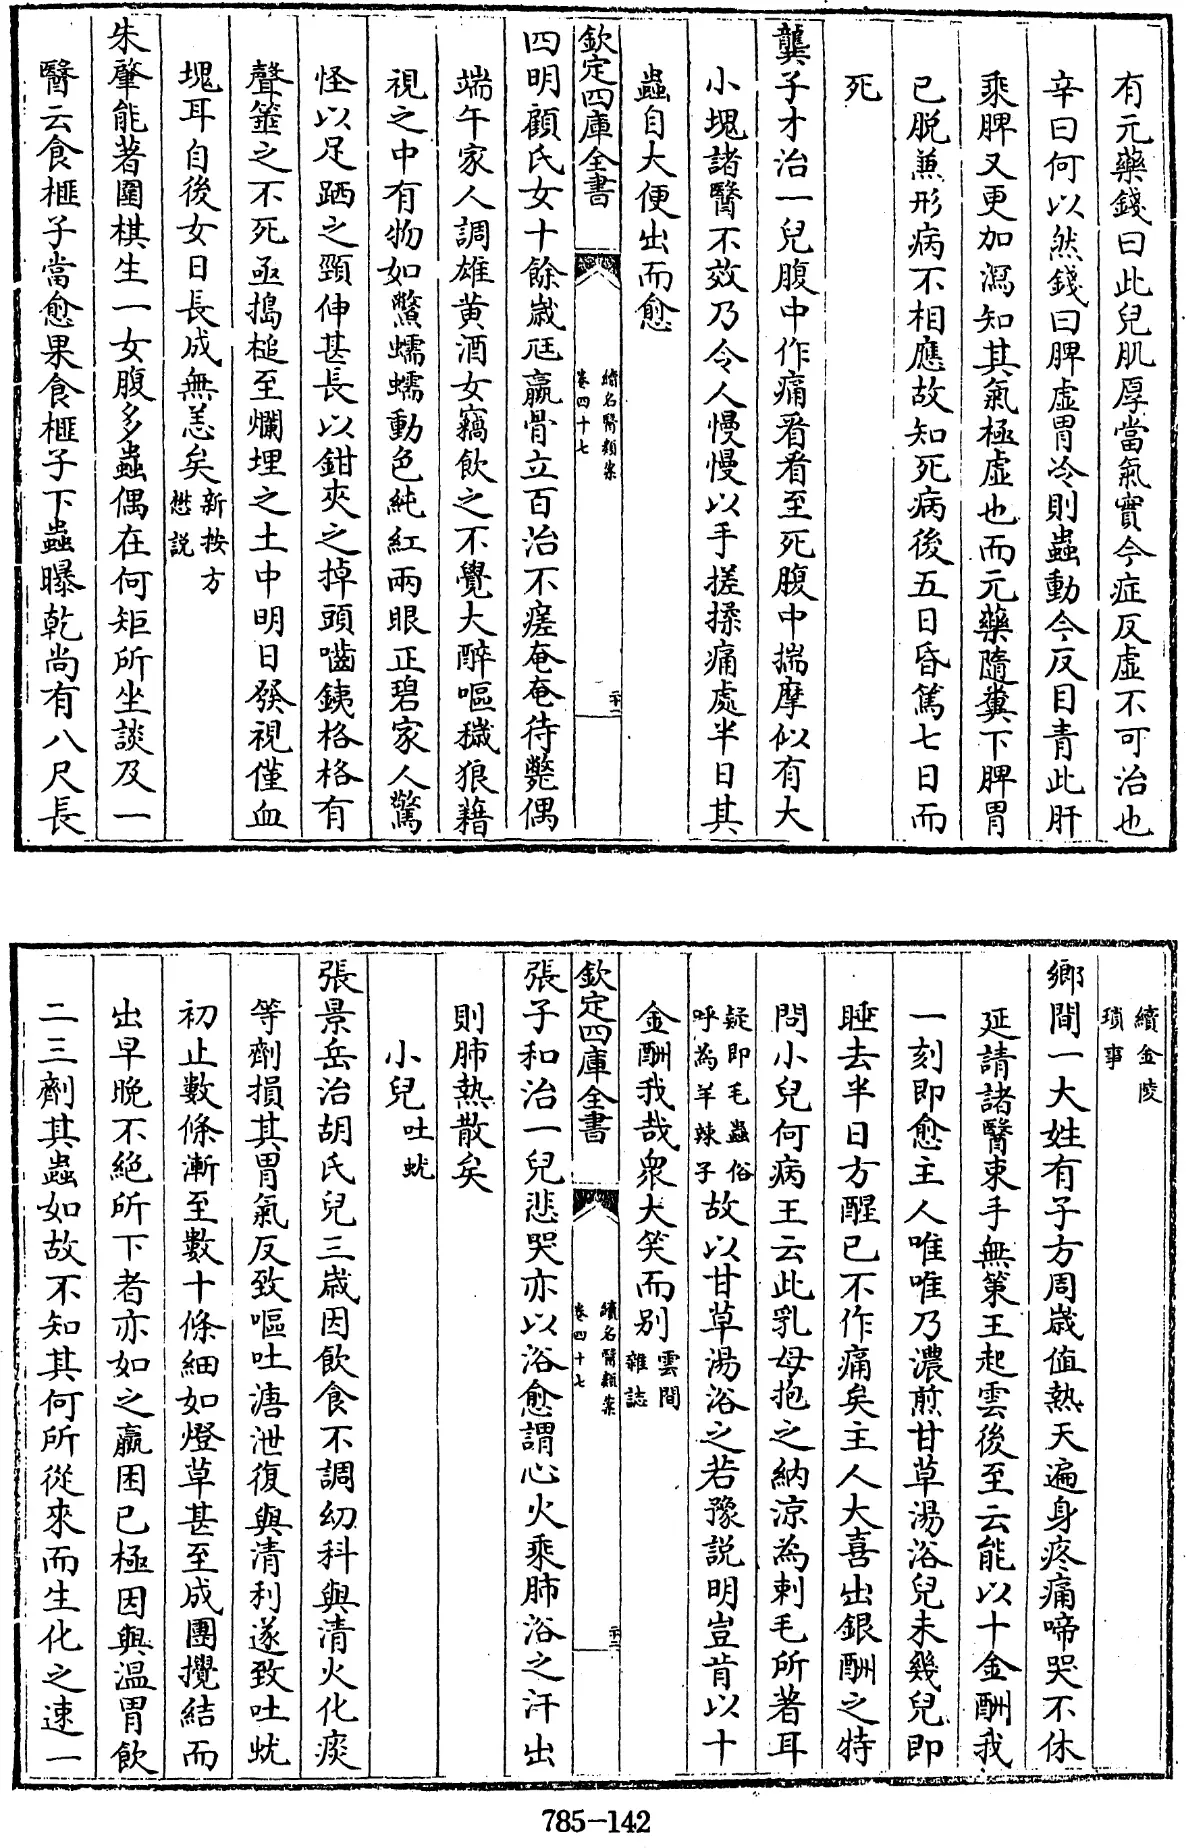 有元藥錢曰此兒肌厚當氣實今症反虛不可治也
辛曰何以然錢曰脾虛胃冷則蟲動今反目青此肝
乘脾又更加瀉知其氣極虛也而元藥隨糞下脾胃
已脫兼形病不相應故知死病後五日昏篤七日而
死
龔子才治一兒腹中作痛看看至死腹中揣摩似有大
小塊諸醫不效乃令人慢慢以手搓揉痛處半日其
蟲自大便出而愈
欽定四庫全書
續名醫類案
卷四十七
二十一
四明顧氏女十餘歲尫羸骨立百治不瘥奄奄待斃偶
端午家人調雄黃酒女竊飲之不覺大醉嘔穢狼藉
視之中有物如鱉蠕蠕動色純紅兩眼正碧家人驚
怪以足跴之頸伸甚長以鉗夾之掉頭嚙鐵格格有
聲箠之不死亟搗槌至爛埋之土中明日發視僅血
塊耳自後女日長成無恙矣新按方
懋説
朱肇能著圍棋生一女腹多蟲偶在何矩所坐談及一
醫云食榧子當愈果食榧子下蟲曝乾尚有八尺長
續金陵
瑣事
鄉間一大姓有子方周歲值熱天遍身疼痛啼哭不休
延請諸醫束手無策王起雲後至云能以十金酬我
一刻即愈主人唯唯乃濃煎甘草湯浴兒未幾兒即
睡去半日方醒已不作痛矣主人大喜出銀酬之特
問小兒何病王云此乳母抱之納涼為刺毛所著耳
疑即毛蟲俗
呼為羊辣子故以甘草湯浴之若豫説明豈肯以十
金酬我哉衆大笑而别雲間
雜誌
欽定四庫全書
續名醫類案
卷四十七
二十二
張子和治一兒悲哭亦以浴愈謂心火乘肺浴之汗出
則肺熱散矣
小兒吐蚘
張景岳治胡氏兒三歲因飲食不調幼科與清火化痰
等劑損其胃氣反致嘔吐溏泄復與清利遂致吐蚘
初止數條漸至數十條細如燈草甚至成團攪結而
出早晚不絕所下者亦如之羸困已極因與温胃飲
二三劑其蟲如故不知其何所從來而生化之速一
785-142